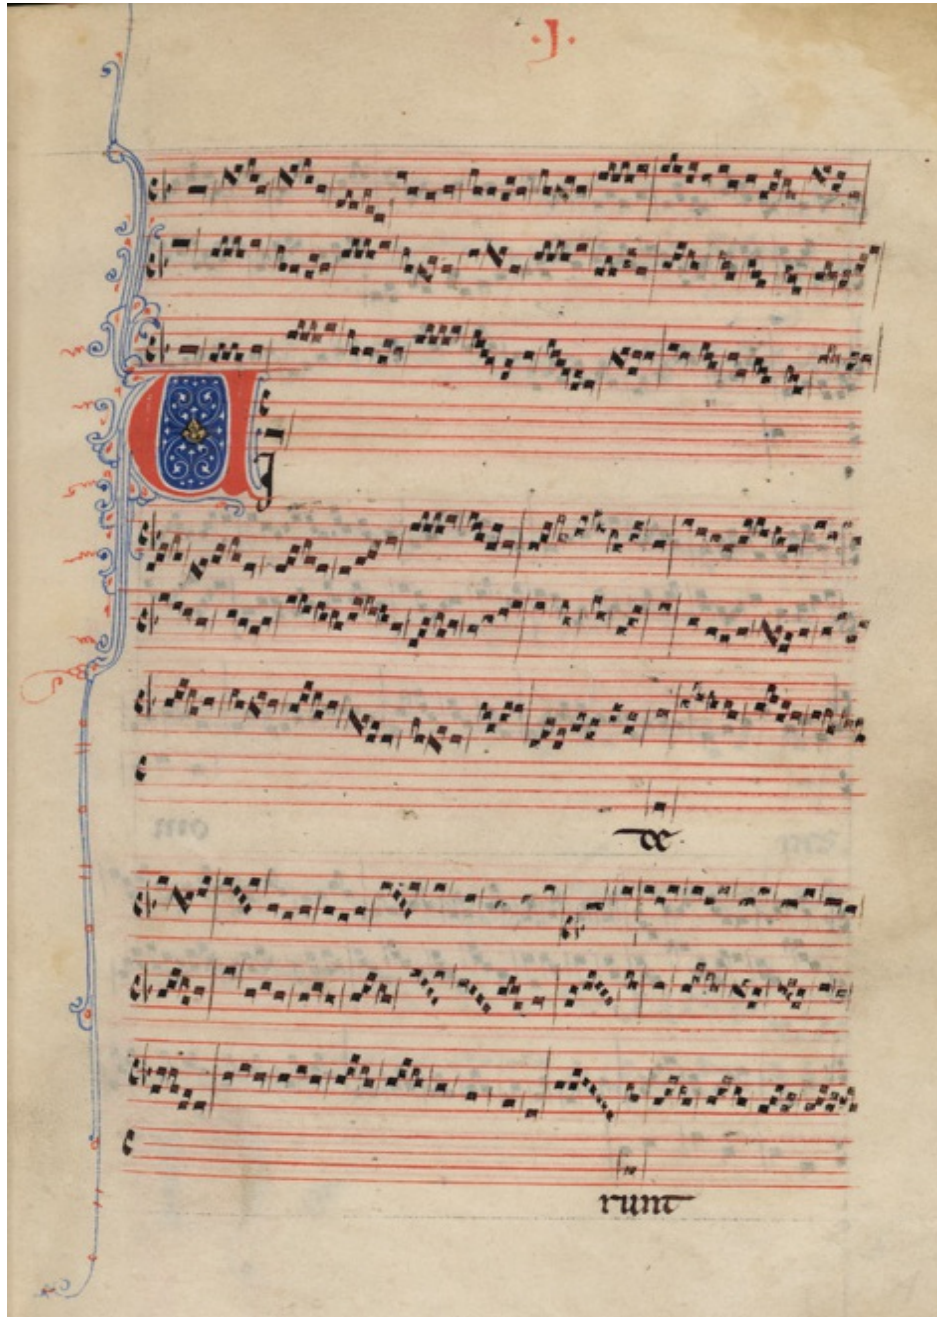 ·I·
VI
de
runt